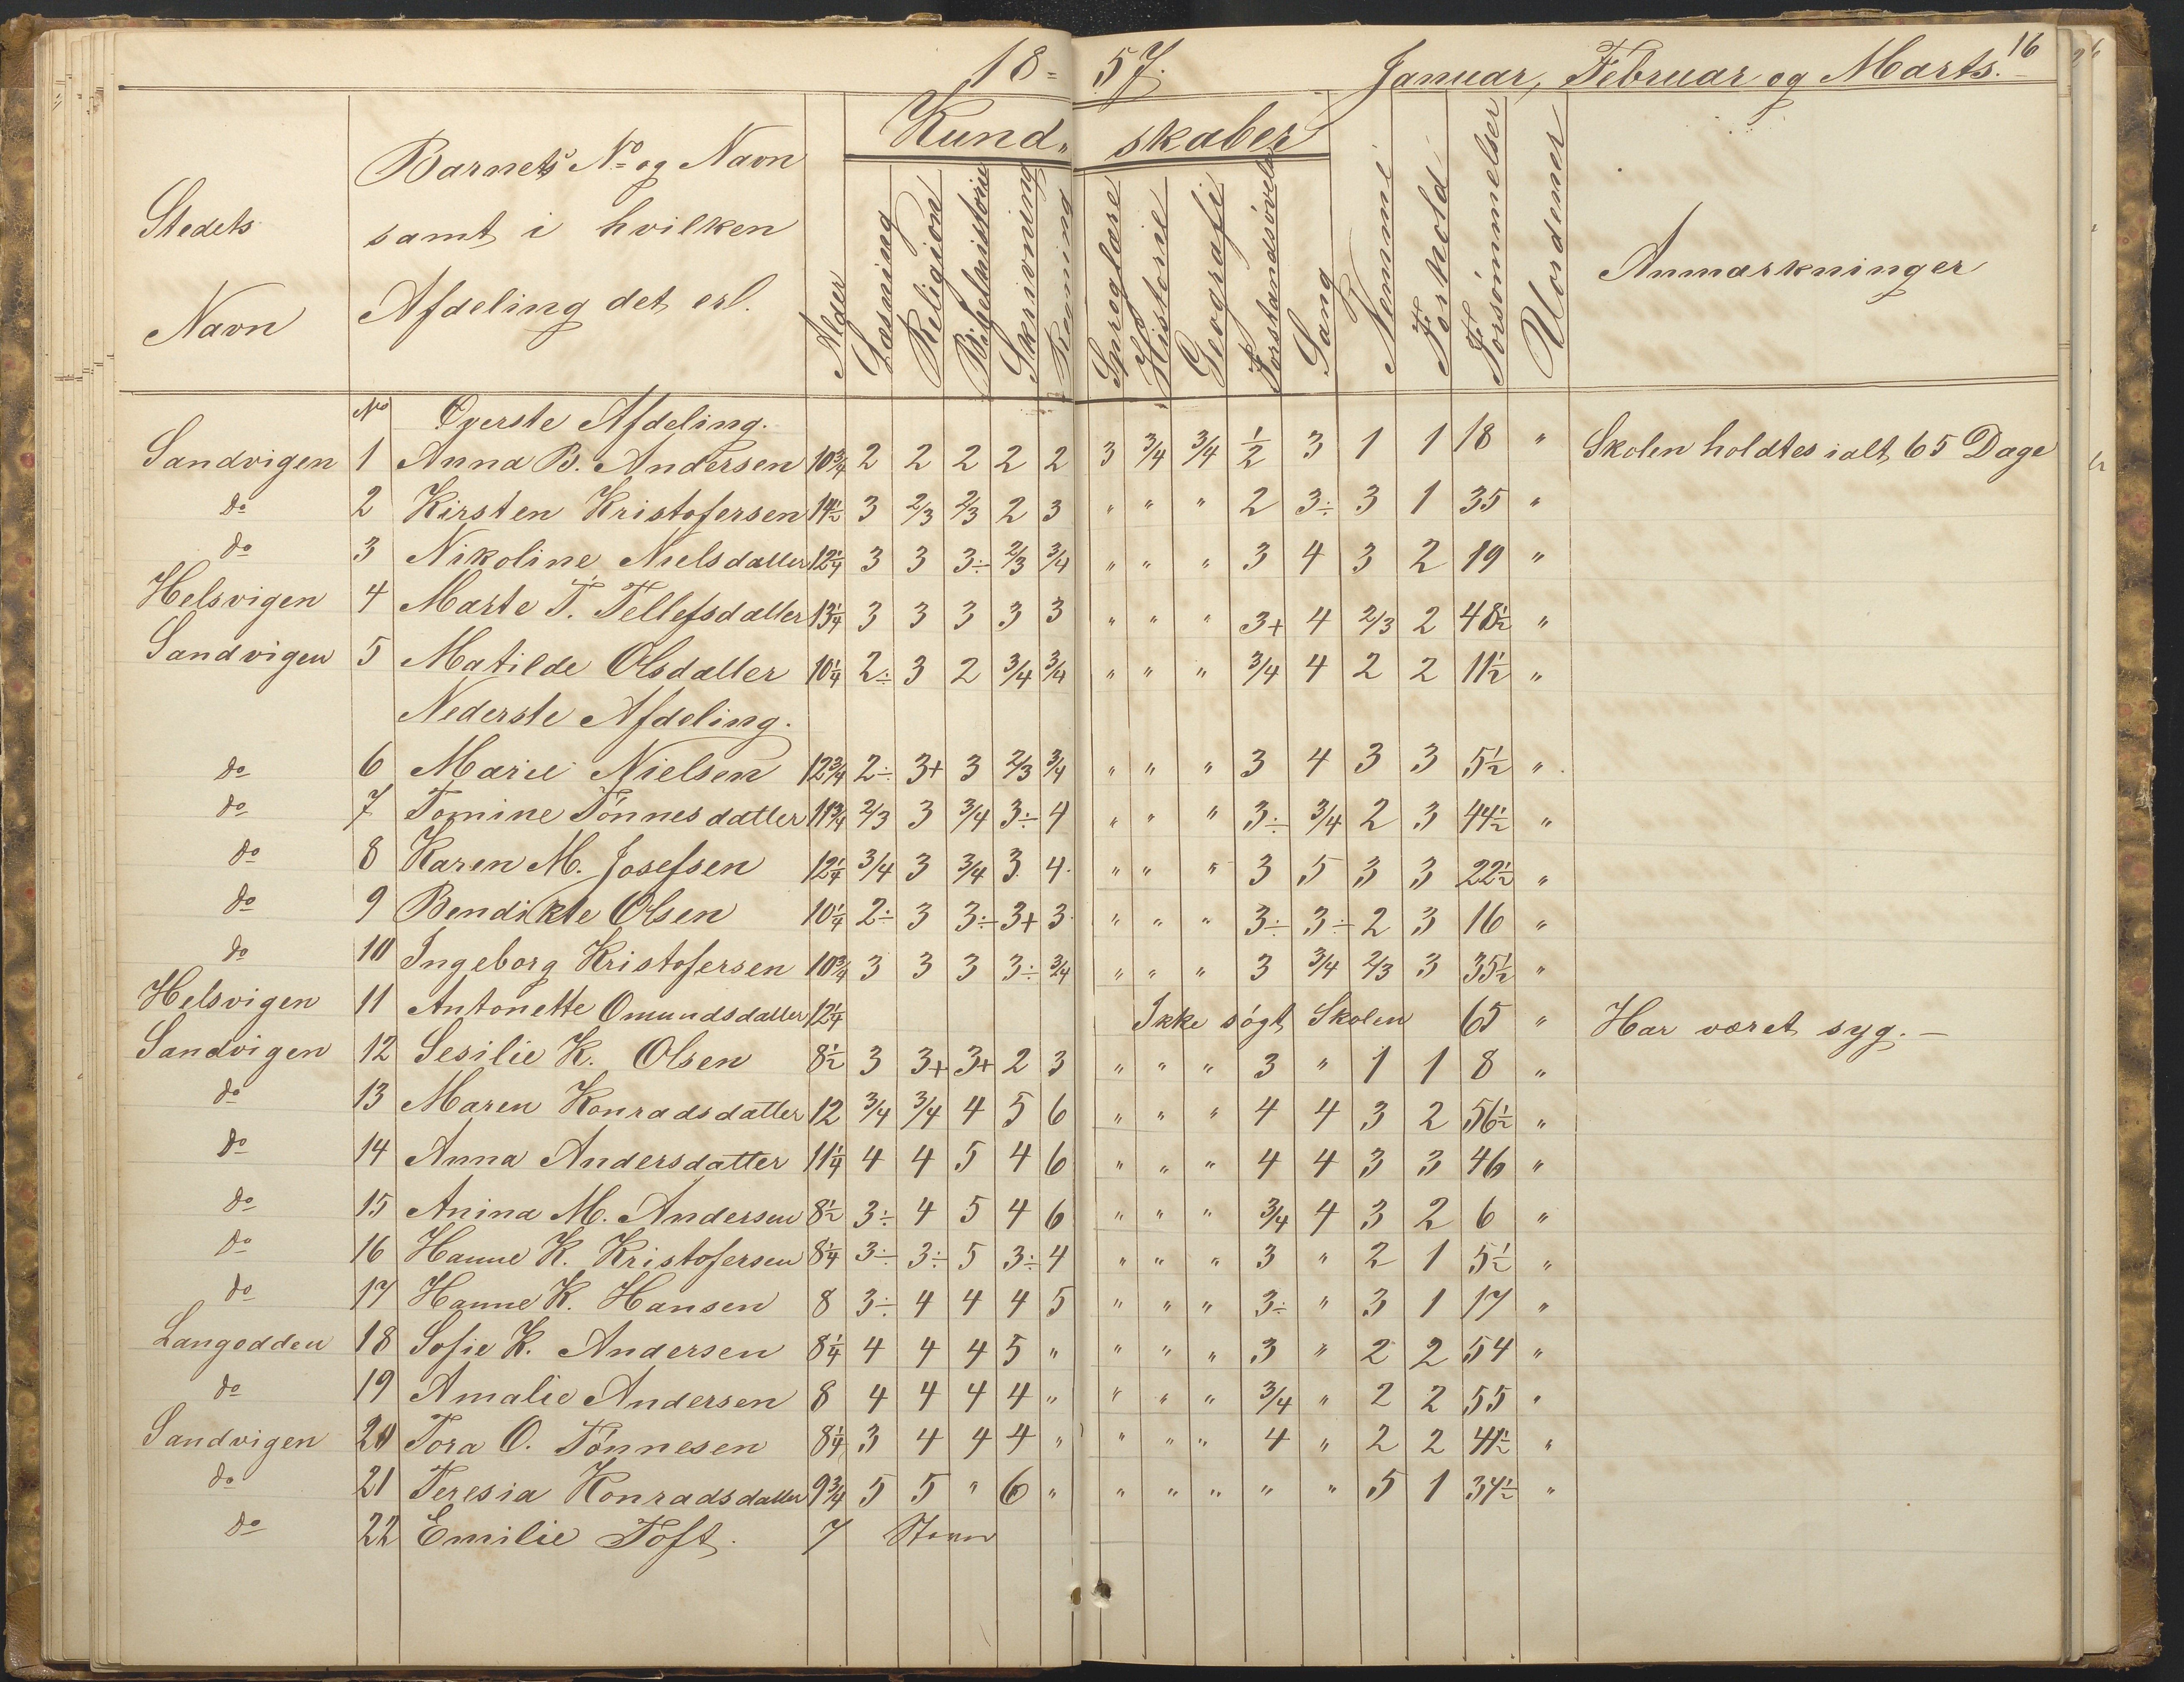 18=57. Januar, Februar og Marts. 16
Kund= skaber
Stedets Navn
Barnets No og Navn
samt i hvilken
Afdeling det er.
Alder Læsning Religion Bibelhistorie Skrivning Regning Sproglære Historie Geografi Forstandsøvelse Sang Nemme Forhold Forsømmelser Uordener Anmærkninger
No Øverste Afdeling.
Sandvigen 1 Anna B. Andersen 10 3/4 2 2 2 2 2 3 3/4 3/4 1/2 3 1 1 18 " Skolen holdtes ialt 65 Dage
do 2 Kirsten Kristofersen 14 1/2 3 2/3 2/3 2 3 " " " 2 3÷ 3 1 35 "
do 3 Nikoline Nielsdatter 12 1/4 3 3 3÷ 2/3 3/4 " " " 3 4 3 2 19 "
Helsvigen 4 Marte T. Tellefsdatter 13 1/4 3 3 3 3 3 " " " 3+ 4 2/3 2 48 1/2 "
Sandvigen 5 Matilde Olsdatter 10 1/4 2÷ 3 2 3/4 3/4 " " " 3/4 4 2 2 11 1/2 "
Nederste Afdeling.
do 6 Marie Nielsen 12 3/4 2÷ 3+ 3 2/3 3/4 " " " 3 4 3 3 5 1/2 "
do 7 Tomine Tönnesdatter 11 3/4 2/3 3 3/4 3÷ 4 " " " 3÷ 3/4 2 3 44 1/2 "
do 8 Karen M. Josefsen 12 1/4 3/4 3 3/4 3 4 " " " 3 5 3 3 22 1/2 "
do 9 Bendikte Olsen 10 1/4 2÷ 3 3÷ 3+ 3 " " " 3÷ 3÷ 2 3 16 "
do 10 Ingeborg Kristofersen 10 3/4 3 3 3 3÷ 3/4 " " " 3 3/4 2/3 3 35 1/2 "
Helsvigen 11 Antonette Omundsdatter 12 1/4 Ikke søgt Skolen 65 " Har været syg. —
Sandvigen 12 Sesilie K. Olsen 8 1/2 3 3+ 3+ 2 3 " " " 3 " 1 1 8 "
do 13 Maren Konradsdatter 12 3/4 3/4 4 5 6 " " " 4 4 3 2 56 1/2 "
do 14 Anna Andersdatter 11 1/4 4 4 5 4 6 " " " 4 4 3 3 46 "
do 15 Anina M. Andersen 8 1/2 3÷ 4 5 4 6 " " " 3/4 4 3 2 6 "
do 16 Hanne K. Kristofersen 8 1/4 3÷ 3÷ 5 3÷ 4 " " " 3 " 2 1 5 1/2 "
do 17 Hanne K. Hansen 8 3÷ 4 4 4 5 " " " 3÷ " 3 1 17 "
Langodden 18 Sofie K. Andersen 8 1/4 4 4 4 5 " " " " 3 " 2 2 54 "
do 19 Amalie Andersen 8 4 4 4 4 " " " " 3/4 " 2 2 55 "
Sandvigen 20 Tora O. Tönnesen 8 1/4 3 4 4 4 " " " " 4 " 2 2 41 1/2 "
do 21 Teresia Konradsdatter 9 3/4 5 5 " 6 " " " " " " 5 1 34 1/2 "
do 22 Emilie Toft. 7